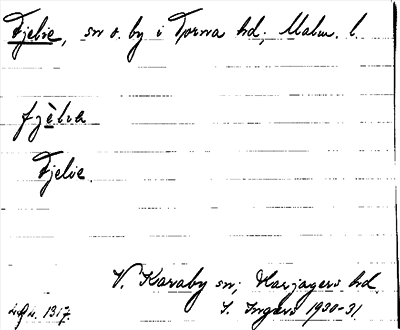 Fjelie, sn o. by i Torna hd; Malm. l.
fjèlia
Fjelie.
V. Karaby sn; Harjagers hd.
S. Ingers 1930-31
1317.